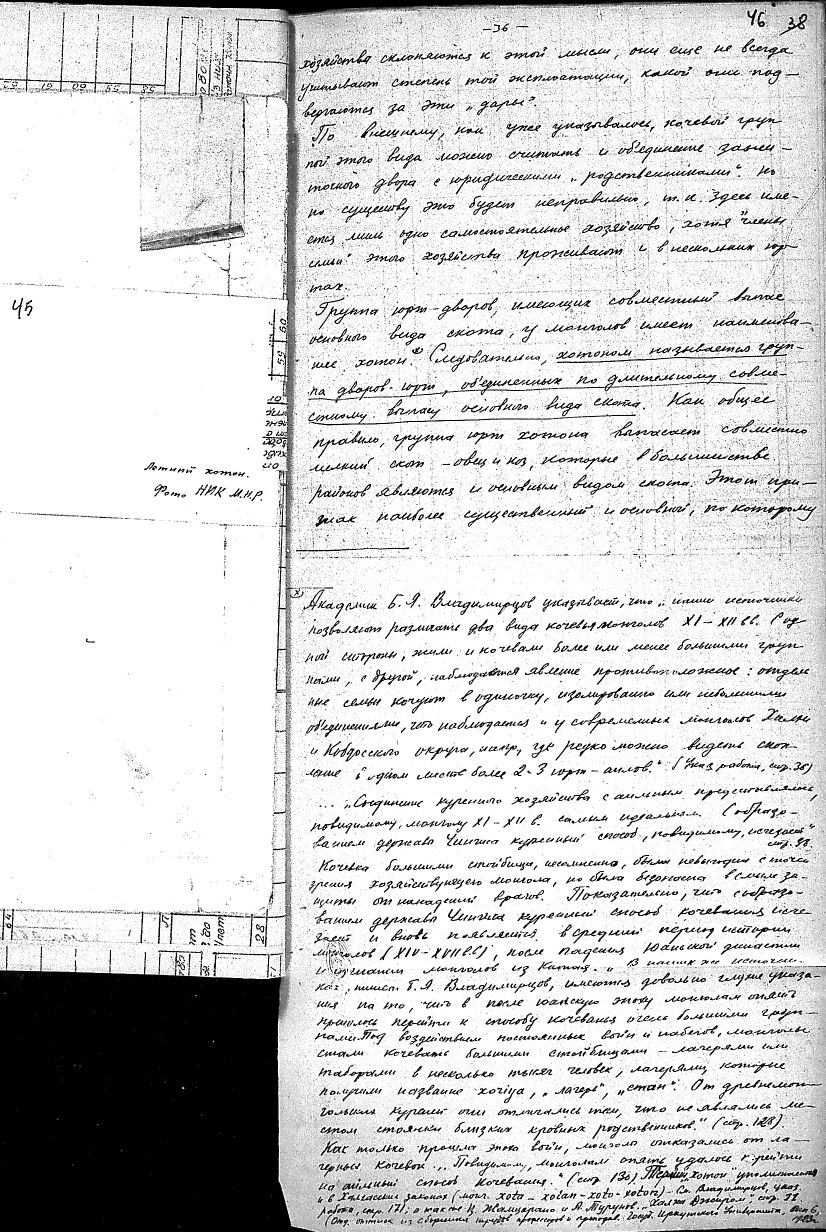 45
Летний хотон.
Фото НИК М.Н.Р.
46 38
— 36 —
хозяйства склоняются к этой мысли, они еще не всегда
учитывают степень той эксплоатации, какой они под-
вергаются за эти „дары".
По внешнему, как уже указывалось, кочевой груп-
пой этого вида можно считать и об'единение зажи-
точного двора с юридическими „родственниками". Но
по существу это будет неправильно, т.к. здесь име-
ется лишь одно самостоятельное хозяйство, хотя "члены
семьи" этого хозяйства проживают и в нескольких юр-
тах.
Группа юрт-дворов, имеющих совместный выпас
основного вида скота, у монголов имеет наименова-
ние „хотон" x) Следовательно, хотоном называется груп-
па дворов-юрт, об'единенных по длительному совме-
стному выпасу основного вида скота. Как общее
правило, группа юрт хотона выпасает совместно
мелкий скот – овец и коз, которые в большинстве
районов являются и основным видом скота. Этот при-
знак наиболее существенный и основной, по которому
x) Академик Б.Я. Владимирцов указывает, что „наши источники
позволяют различать два вида кочевья монголов XI–XII вв. С од-
ной стороны, жили и кочевали более или менее большими груп-
пами, с другой, наблюдается явление противоположное: отдель
ные семьи кочуют в одиночку, изолированно или небольшими
об'единениями, что наблюдается и у современных монголов Халхи
и Кобдоского округа, напр, где редко можно видеть скоп-
ление в одном месте более 2-3 юрт-аилов." (Указ работа, стр. 36)
... „Соединение куренного хозяйства с аильным представлялось,
повидимому, монголу XI–XII в. самым идеальным. С образо-
ванием державы Чингиса куренный способ, повидимому, исчезает"
стр. 38.
Кочевка большими стойбищами, несомненно, была невыгодна с точки
зрения хозяйствующего монгола, но была безопасна в смысле за-
щиты от нападений врагов. Показательно, что с образо-
ванием державы Чингиса куренный способ кочевания исче-
зает и вновь появляется в средний период истории
монголов (XIV–XVII вв), после падения Юаньской династии
и изгнания монголов из Китая. „В наших же источни-
ках, пишет Б.Я. Владимирцов, имеются довольно глухие указа-
ния на то, что в после юаньскую эпоху монголам опять
пришлось перейти к способу кочевания очень большими груп-
пами. Под воздействием постоянных войн и набегов, монголы
стали кочевать большими стойбищами – лагерями или
таборами в несколько тысяч человек, лагерями, которые
получили название хочіуа, „лагерь", „стан". От древнемон-
гольских куреней они отличались тем, что не являлись ме-
стом стоянки близких кровных родственников." (стр. 128).
Как только прошла эпоха войн, монголы отказались от ла-
герных кочевок. „Повидимому, монголам опять удалось перейти
на аильный способ кочевания." (стр 130) Термин „хотон" упоминается
и в Халхаских законах (монг. xota – xotan – xoto – xoton) – См. Владимирцов, указ.
работа, стр. 171; а также Ц. Жамцарано и А. Турунов „Халха Джиром" стр. 12
(Отд. оттиск из сборника трудов профессоров и преподав. Госуд. Иркутского Университета, вып 6,